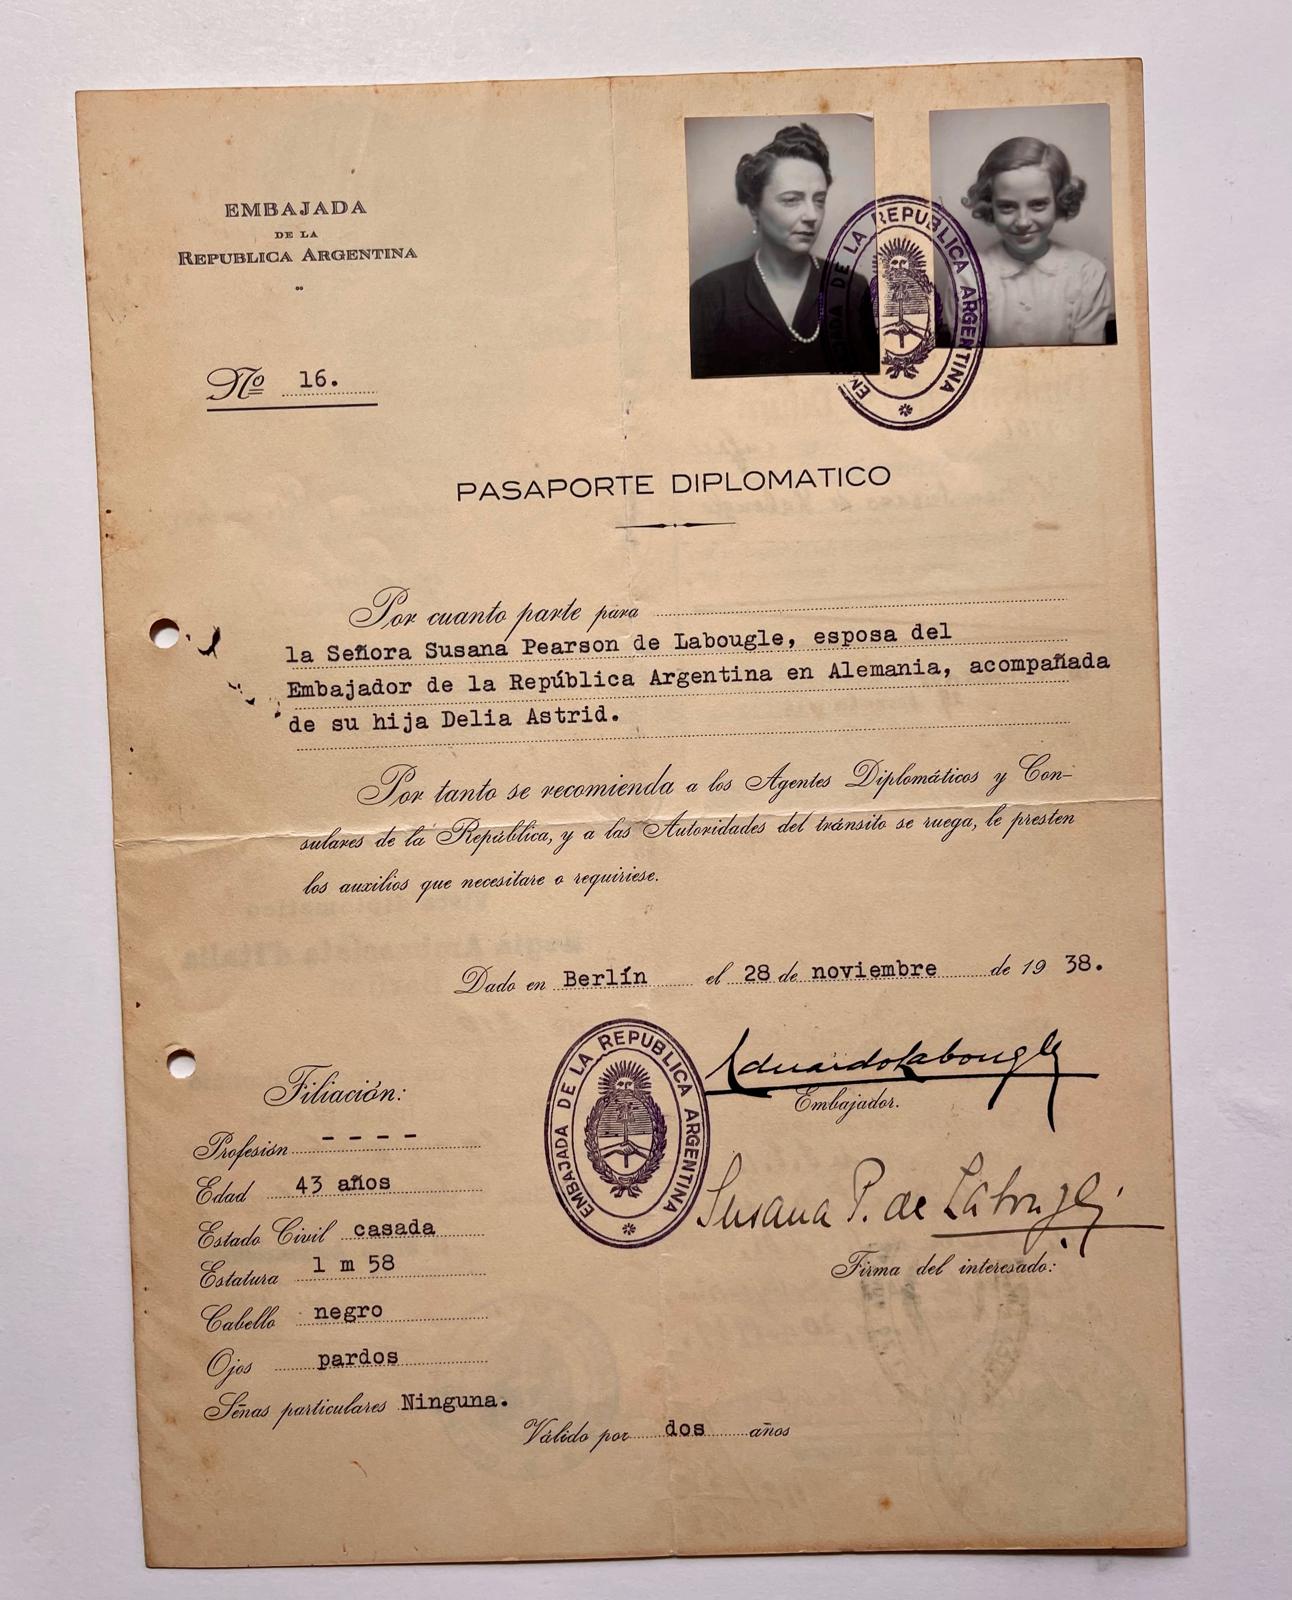 EMBAJADA
DE LA
REPUBLICA ARGENTINA
Nº 16.
EMBAJADA DE LA REPUBLICA ARGENTINA
PASAPORTE DIPLOMATICO
Por cuanto parte para
la Señora Susana Pearson de Labougle, esposa del
Embajador de la República Argentina en Alemania, acompañada
de su hija Delia Astrid.
Por tanto se recomienda a los Agentes Diplomáticos y Con-
sulares de la República, y a las Autoridades del tránsito se ruega, le presten
los auxilios que necesitare o requiriese.
Dado en Berlín el 28 de noviembre de 19 38.
EMBAJADA DE LA REPUBLICA ARGENTINA
Eduardo Labougle
Embajador.
Susana P. de Labougle
Firma del interesado:
Filiación:
Profesión ----
Edad 43 años
Estado Civil casada
Estatura 1 m 58
Cabello negro
Ojos pardos
Séñas particulares Ninguna.
Válido por dos años